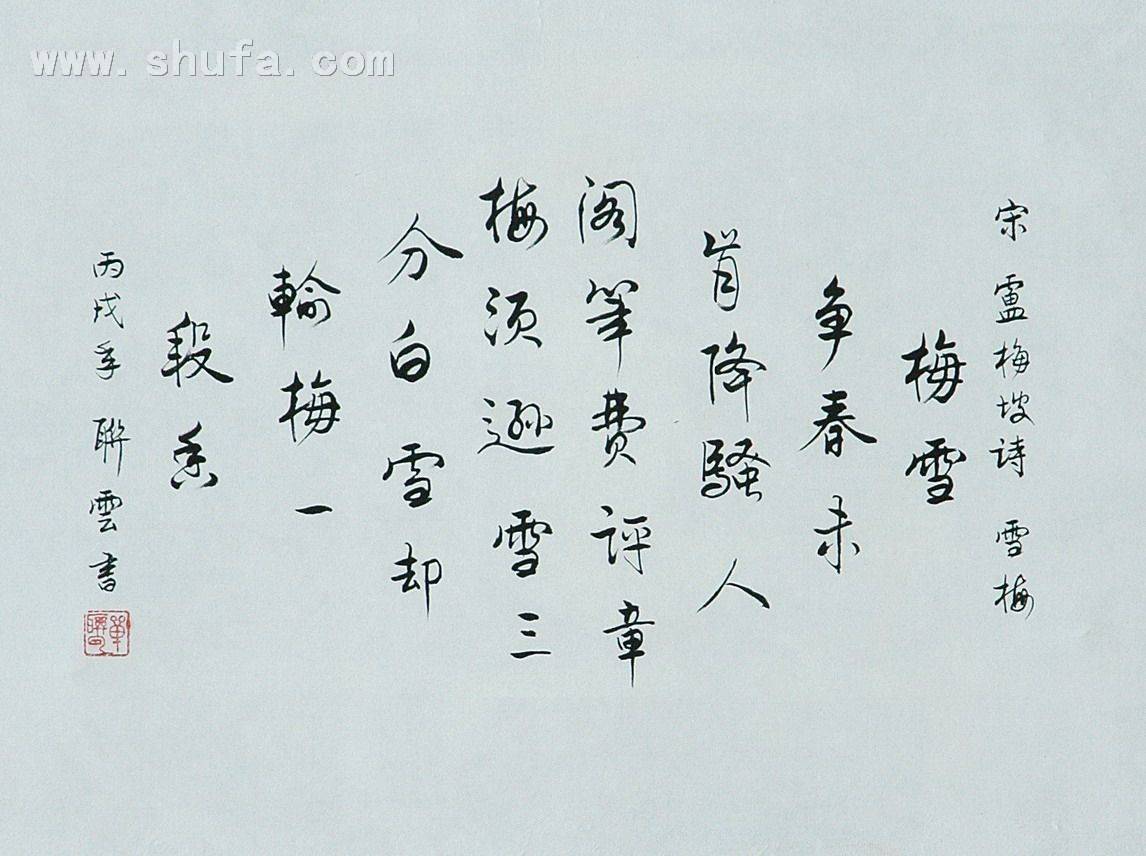 www.shufa.com
宋 盧梅坡詩 雪梅
梅雪
争春未
肯降騷人
阁筆費評章
梅须遜雪三
分白雪却
輸梅一
段香
丙戌年 聯雲書